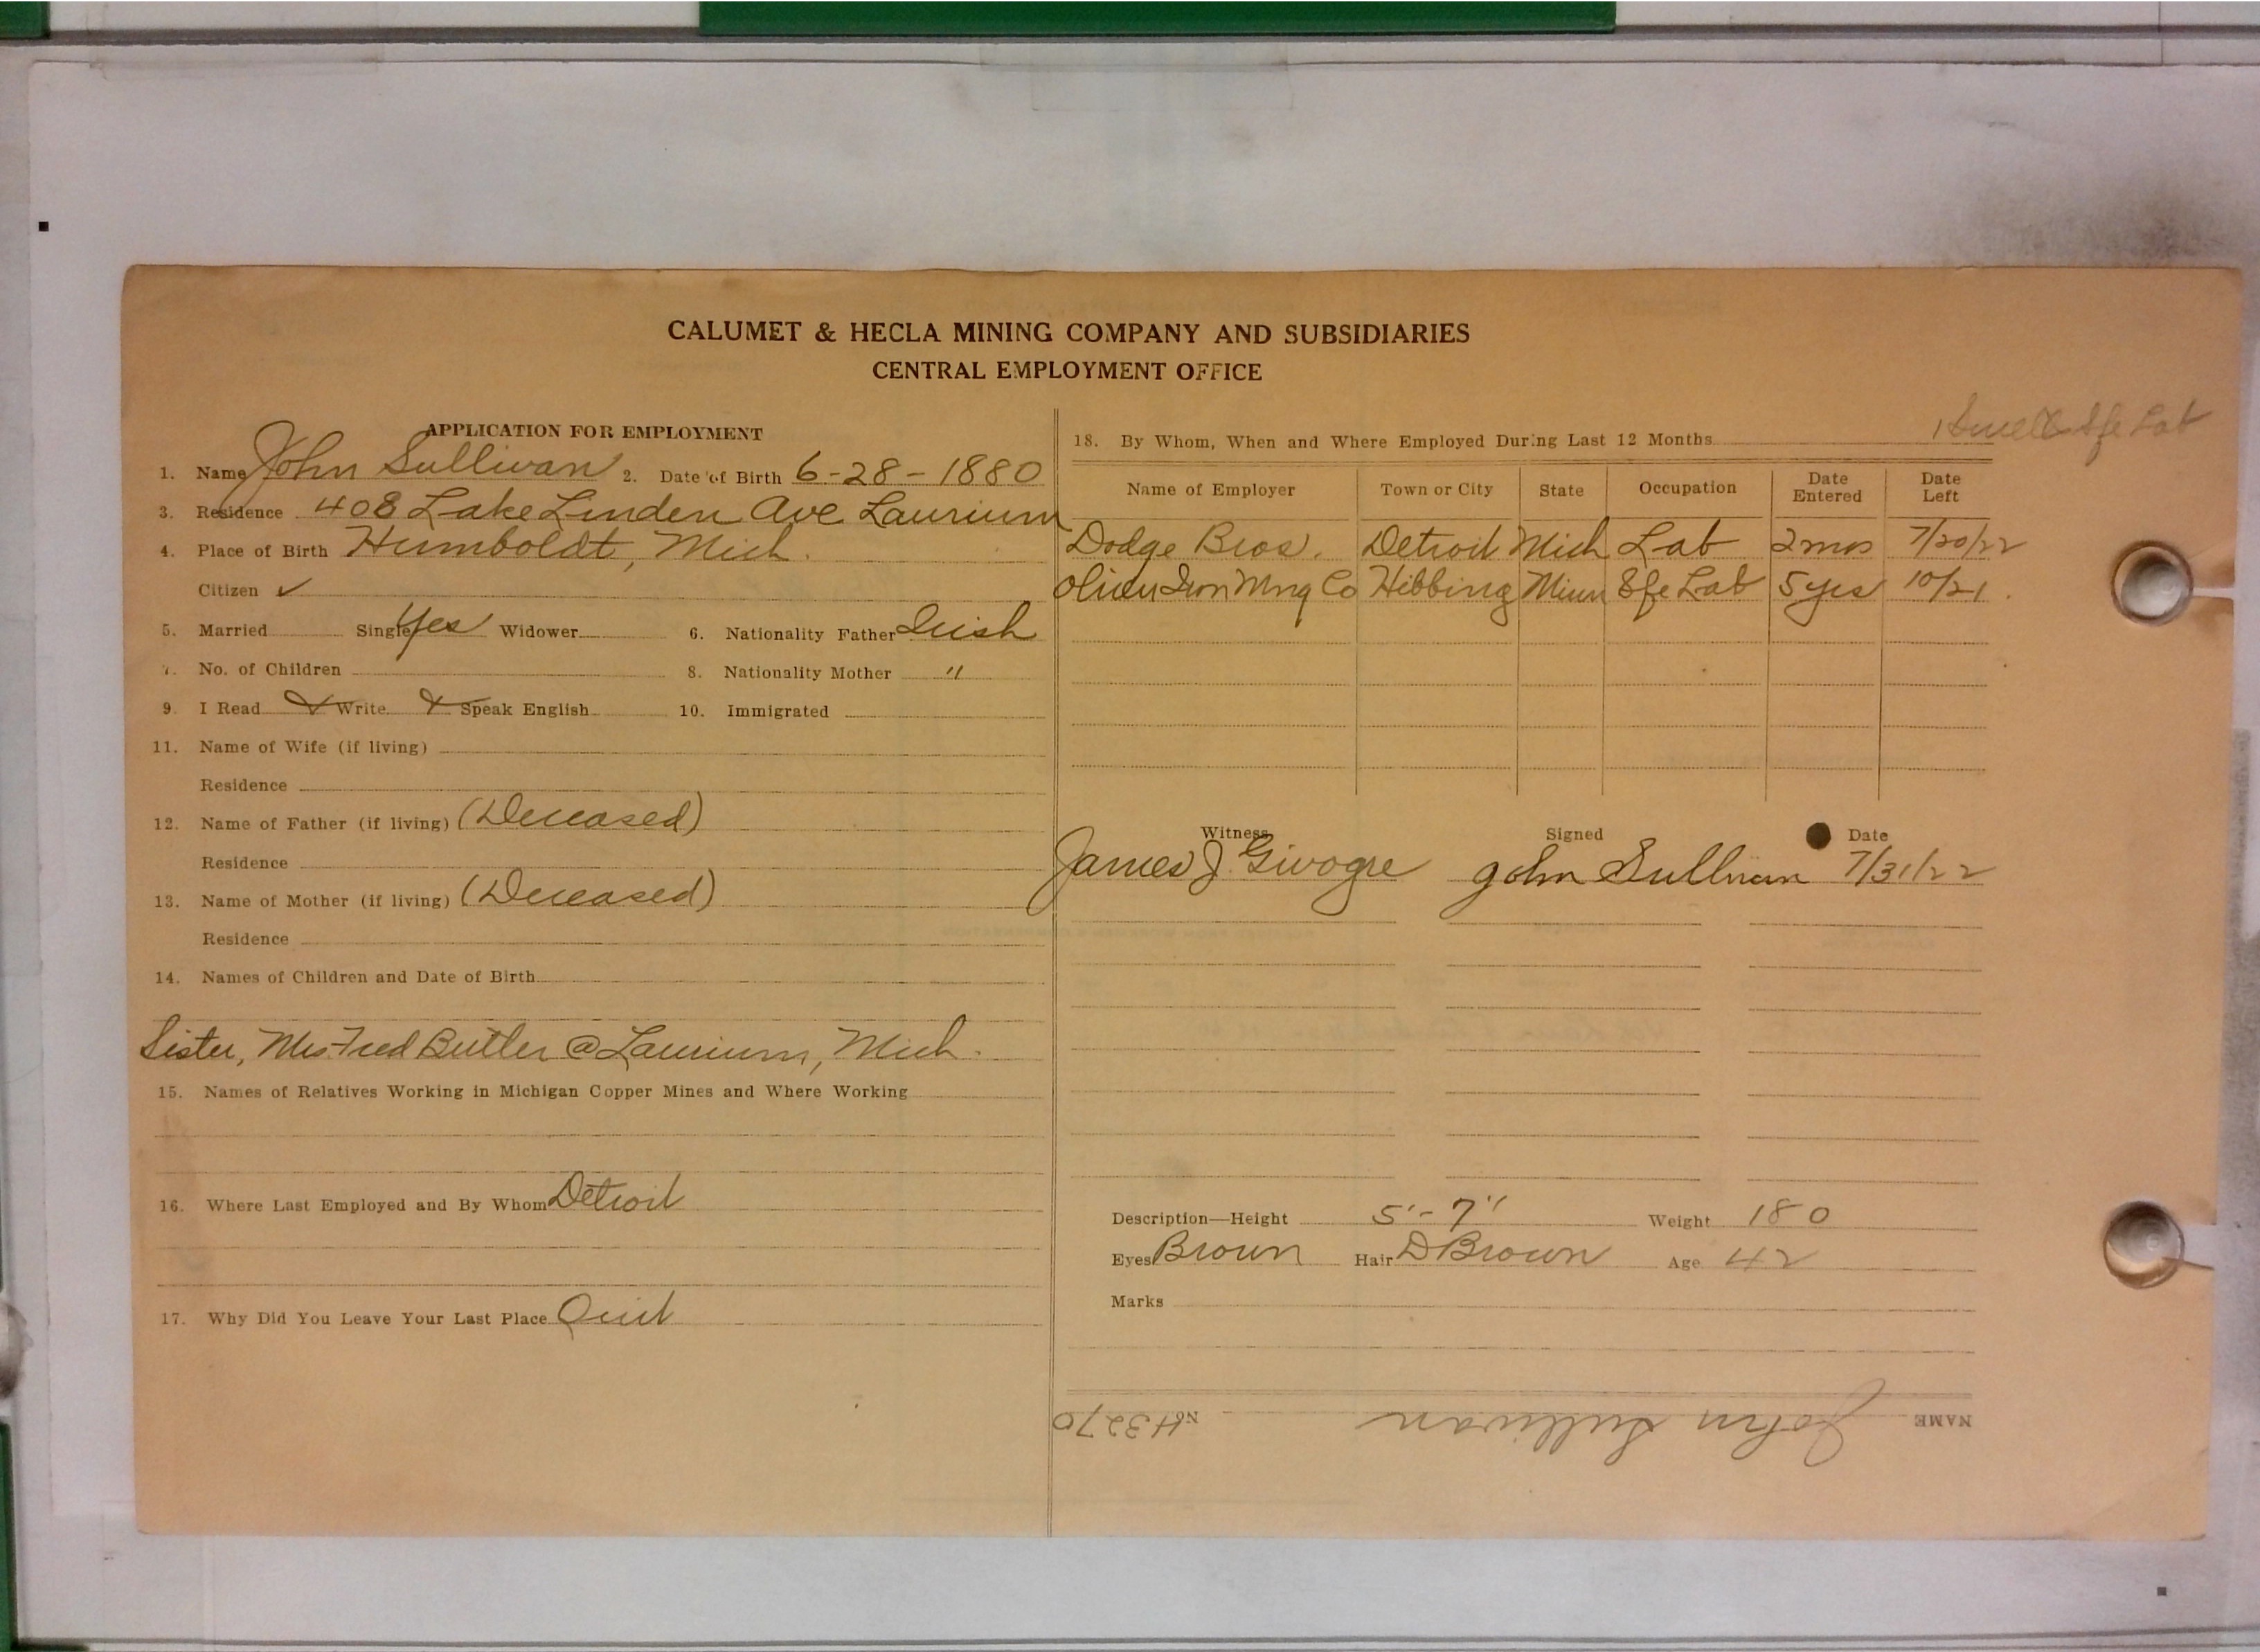 CALUMET & HECLA MINING COMPANY AND SUBSIDIARIES
CENTRAL EMPLOYMENT OFFICE
APPLICATION FOR EMPLOYMENT
1. Name John Sullivan 2. Date of Birth 6-28-1880
3. Residence 408 Lake Linden Ave Laurium
4. Place of Birth Humboldt, Mich.
Citizen ✓
5. Married Single Yes Widower 6. Nationality Father Irish
7. No. of Children 8. Nationality Mother "
9. I Read ✓ Write ✓ Speak English 10. Immigrated
11. Name of Wife (if living)
Residence
12. Name of Father (if living) (Deceased)
Residence
13. Name of Mother (if living) (Deceased)
Residence
14. Names of Children and Date of Birth
Sister, Mrs Fred Butler @ Laurium, Mich.
15. Names of Relatives Working in Michigan Copper Mines and Where Working
16. Where Last Employed and By Whom Detroit
17. Why Did You Leave Your Last Place Quit
Lab
18. By Whom, When and Where Employed During Last 12 Months
Name of Employer Town or City State Occupation Date Entered Date Left
Dodge Bros. Detroit Mich Lab 2 mos 7/20/22
Oliver Iron Mng Co Hibbing Minn Sfe Lab 5 yrs 10/21.
Witness Signed Date
James J. Givogre John Sullivan 7/31/22
Description—Height 5'-7" Weight 180
Eyes Brown Hair D Brown Age 42
Marks
NAME John Sullivan No H3270